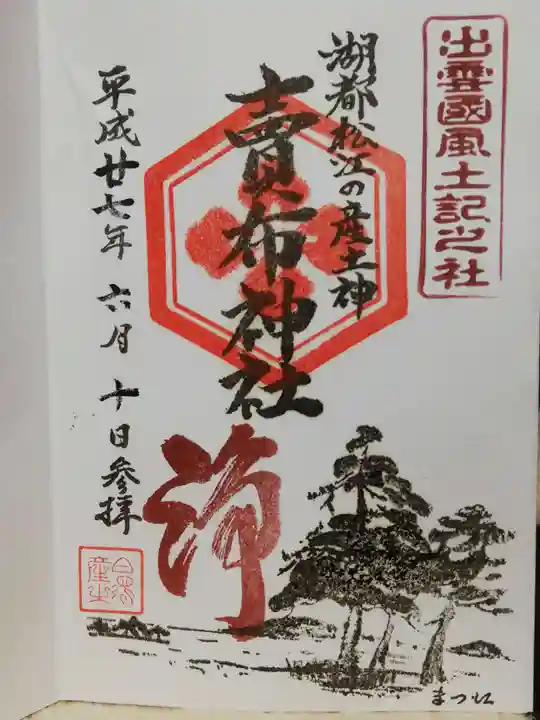 出雲國風土記之社
湖都松江の産土神
賣布神社
浄
平成廿七年 六月 十日参拝
まつ江